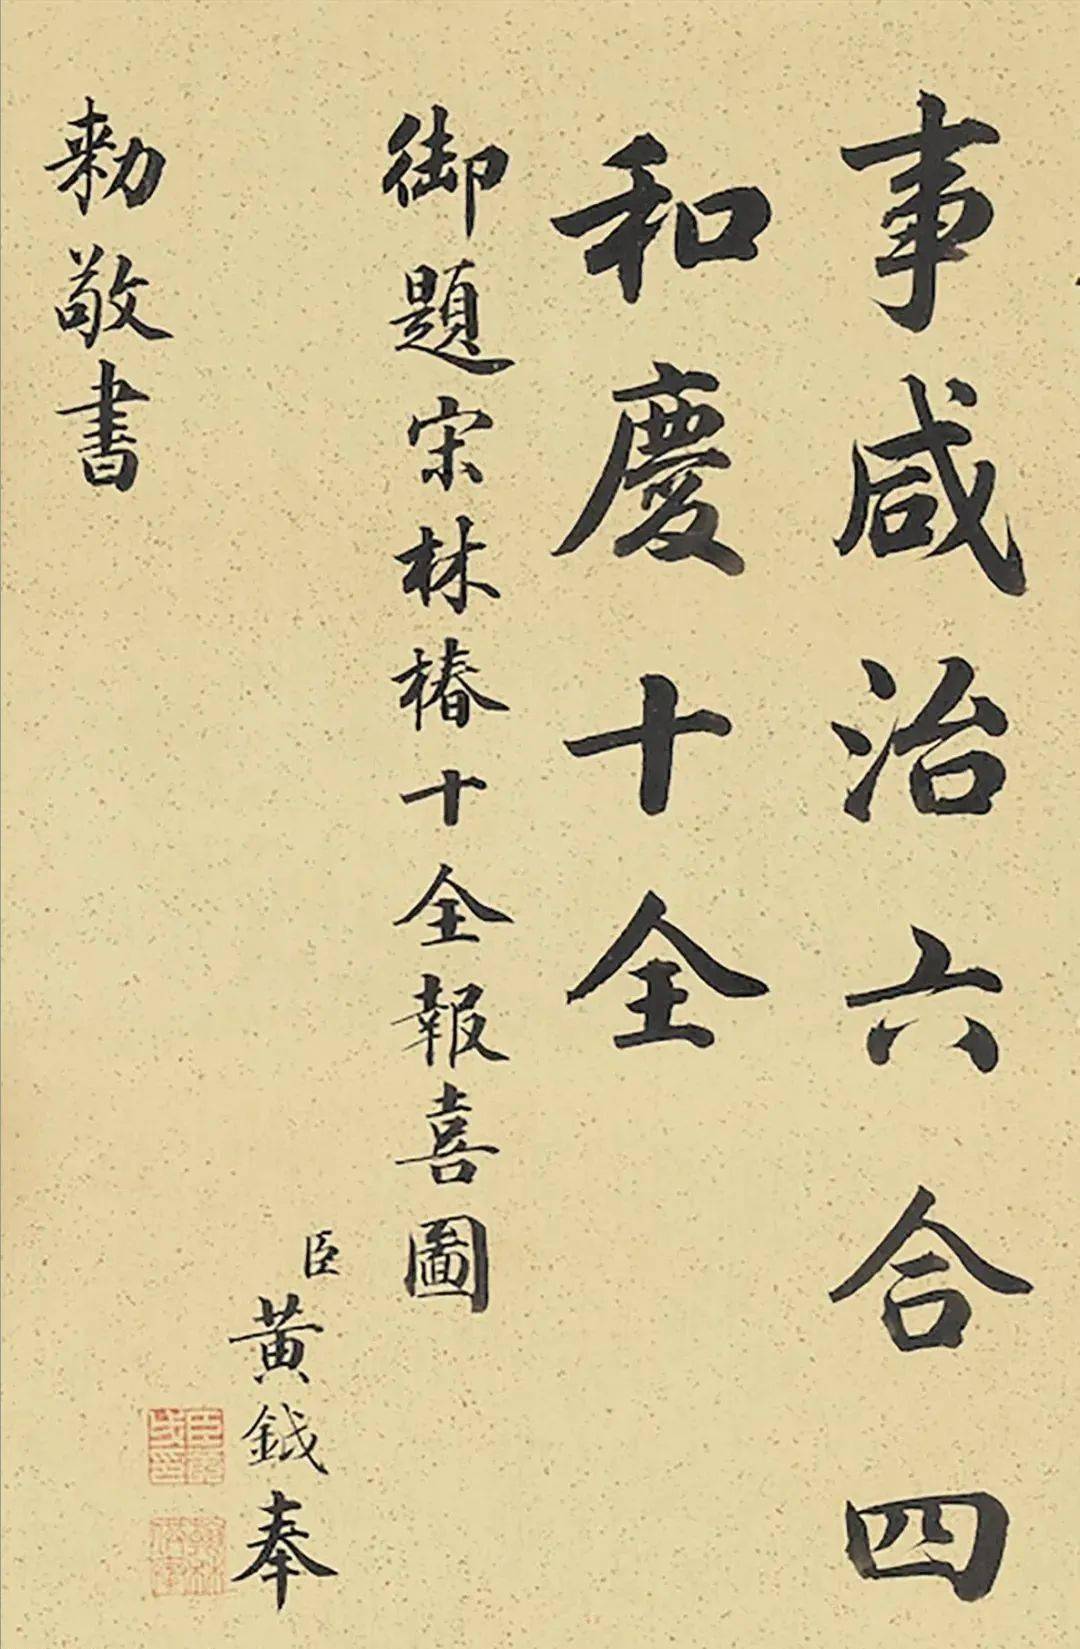 事咸治六合四
和慶十全
御題宋林椿十全報喜圖
臣黄鉞奉
勅敬書